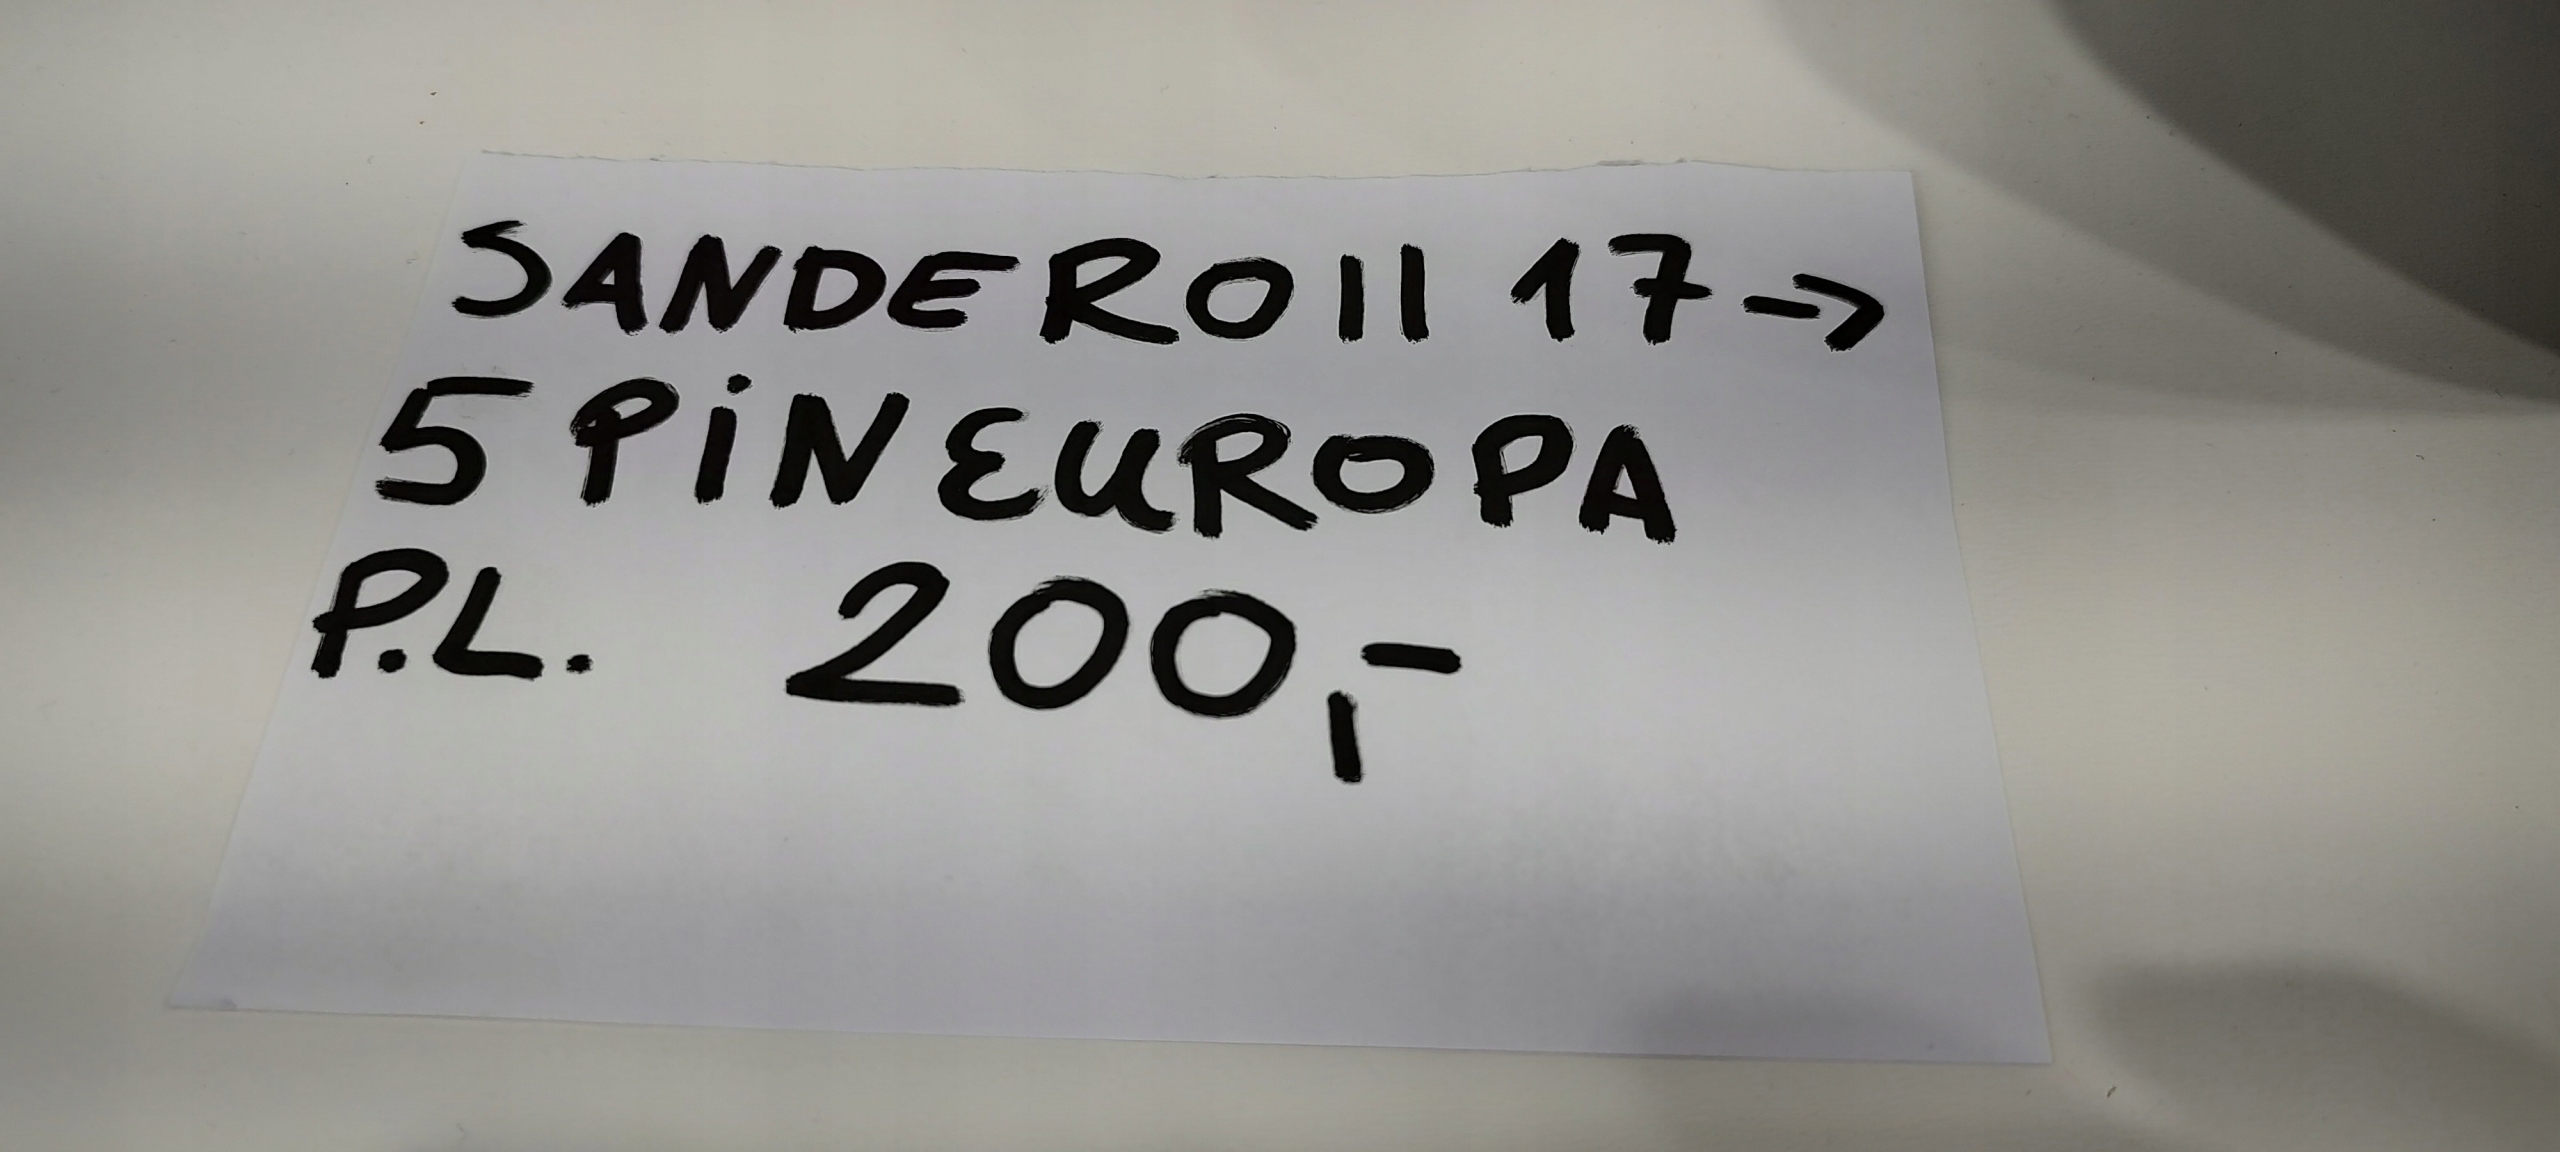 SANDERO II 17->
5 PiN EUROPA
P.L. 200,-